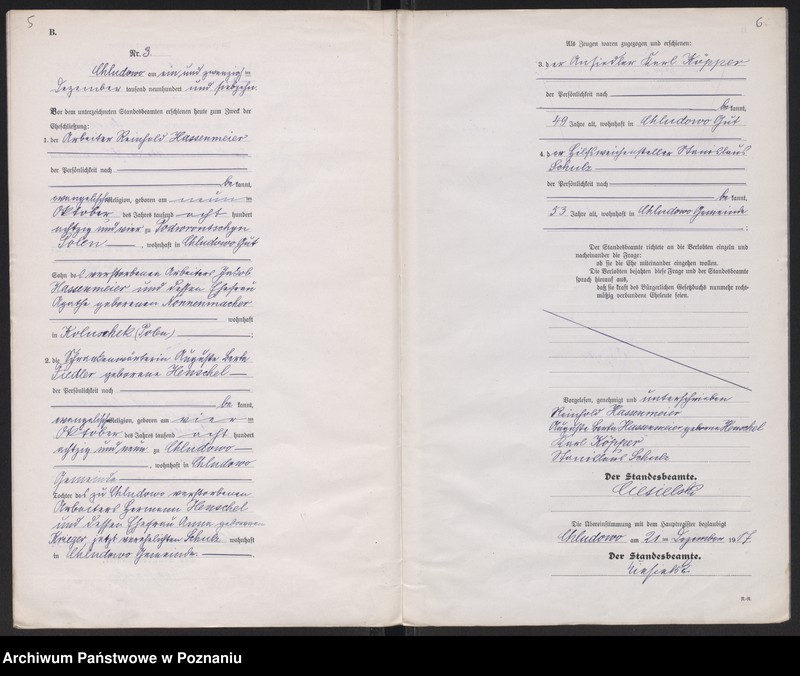 5
B.
Nr. 3.
Chludowo am ein und zwanzigsten
Dezember tausend neunhundert und siebzehn
Vor dem unterzeichneten Standesbeamten erschienen heute zum Zweck der
Eheschließung:
1. der Arbeiter Reinhold Hassenmeier
der Persönlichkeit nach
be kannt,
evangelischer Religion, geboren am neun
Oktober des Jahres tausend acht hundert
achtzig und vier zu
Polen, wohnhaft in Chludowo Gut
Sohn des verstorbenen Arbeiters Jakob
Hassenmeier und dessen Ehefrau
Agathe geborenen Nonnenmacher
wohnhaft
in Koluschek (Polen);
2. die Schrankenwärterin Auguste Berta
Fiedler geborene Henschel
der Persönlichkeit nach
be kannt,
evangelischer Religion, geboren am vier
Oktober des Jahres tausend acht hundert
achtzig und neun zu Chludowo
, wohnhaft in Chludowo
Gemeinde
Tochter des zu Chludowo verstorbenen
Arbeiters Hermann Henschel
und dessen Ehefrau Anna geborenen
Krieger jetzt verehelichten Schulz wohnhaft
in Chludowo Gemeinde.
6.
Als Zeugen waren zugezogen und erschienen:
3. der Ansiedler Karl Köpper
der Persönlichkeit nach
be kannt,
49 Jahre alt, wohnhaft in Chludowo Gut
4. der Hilfsweichensteller Stanislaus
Schulz
der Persönlichkeit nach
be kannt,
53 Jahre alt, wohnhaft in Chludowo Gemeinde
;
Der Standesbeamte richtete an die Verlobten einzeln und
nacheinander die Frage:
ob sie die Ehe miteinander eingehen wollen.
Die Verlobten bejahten diese Frage und der Standesbeamte
sprach hierauf aus,
daß sie kraft des Bürgerlichen Gesetzbuchs nunmehr recht-
mäßig verbundene Eheleute seien.
Vorgelesen, genehmigt und unterschrieben
Reinhold Hassenmeier
Auguste Berta Hassenmeier geborene Henschel
Karl Köpper
Stanislaus Schulz
Der Standesbeamte.
Ciesielski
Die Übereinstimmung mit dem Hauptregister beglaubigt
Chludowo am 21ten Dezember 1917.
Der Standesbeamte.
Ciesielski.
Archiwum Państwowe w Poznaniu